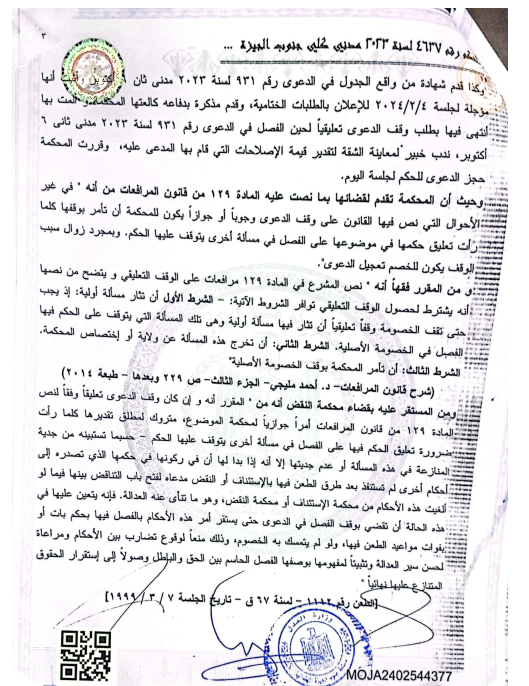 رقم ٤٦٣٧ لسنة ٢٠٢٣ مدني كلي جنوب الجيزة ...
٣
وكذا قدم شهادة من واقع الجدول في الدعوى رقم ٩٣١ لسنة ٢٠٢٣ مدنى ثان أكتوبر أنها
مؤجلة لجلسة ٢٠٢٤/٢/٤ للإعلان بالطلبات الختامية، وقدم مذكرة بدفاعه طالعتها المحكمة وألمت بها
أنتهى فيها بطلب وقف الدعوى تعليقياً لحين الفصل في الدعوى رقم ٩٣١ لسنة ٢٠٢٣ مدنى ثانى ٦
أكتوبر، ندب خبير لمعاينة الشقة لتقدير قيمة الإصلاحات التي قام بها المدعى عليه، وقررت المحكمة
حجز الدعوى للحكم لجلسة اليوم.
وحيث أن المحكمة تقدم لقضائها بما نصت عليه المادة ١٢٩ من قانون المرافعات من أنه " في غير
الأحوال التي نص فيها القانون على وقف الدعوى وجوباً أو جوازاً يكون للمحكمة أن تأمر بوقفها كلما
رأت تعليق حكمها في موضوعها على الفصل في مسألة أخرى يتوقف عليها الحكم. وبمجرد زوال سبب
الوقف يكون للخصم تعجيل الدعوى".
و من المقرر فقهاً أنه " نص المشرع في المادة ١٢٩ مرافعات على الوقف التعليقي و يتضح من نصها
أنه يشترط لحصول الوقف التعليقي توافر الشروط الآتية: – الشرط الأول أن تثار مسألة أولية: إذ يجب
حتى تقف الخصومة وقفاً تعليقياً أن تثار فيها مسألة أولية وهى تلك المسألة التي يتوقف على الحكم فيها
الفصل في الخصومة الأصلية. الشرط الثاني: أن تخرج هذه المسألة عن ولاية أو إختصاص المحكمة.
الشرط الثالث: أن تأمر المحكمة بوقف الخصومة الأصلية"
(شرح قانون المرافعات- د. أحمد مليجي- الجزء الثالث- ص ٢٢٩ وبعدها – طبعة ٢٠١٤)
ومن المستقر عليه بقضاء محكمة النقض أنه من " المقرر أنه و إن كان وقف الدعوى تعليقاً وفقاً لنص
المادة ١٢٩ من قانون المرافعات أمراً جوازياً لمحكمة الموضوع، متروك لمطلق تقديرها كلما رأت
ضرورة تعليق الحكم فيها على الفصل في مسألة أخرى يتوقف عليها الحكم – حسبما تستبينه من جدية
المنازعة في هذه المسألة أو عدم جديتها إلا أنه إذا بدا لها أن في ركونها في حكمها الذي تصدره إلى
أحكام أخرى لم تستنفد بعد طرق الطعن فيها بالإستئناف أو النقض مدعاه لفتح باب التناقض بينها فيما لو
ألغيت هذه الأحكام من محكمة الإستئناف أو محكمة النقض، وهو ما تتأى عنه العدالة. فإنه يتعين عليها في
هذه الحالة أن تقضي بوقف الفصل في الدعوى حتى يستقر أمر هذه الأحكام بالفصل فيها بحكم بات أو
بفوات مواعيد الطعن فيها، ولو لم يتمسك به الخصوم، وذلك منعاً لوقوع تضارب بين الأحكام ومراعاة
لحسن سير العدالة وتثبيتاً لمفهومها بوصفها الفصل الحاسم بين الحق والباطل وصولاً إلى إستقرار الحقوق
المتنازع عليها نهائياً "
[الطعن رقم ١١١٢ – لسنة ٦٧ ق – تاريخ الجلسة ٧ / ٣ / ١٩٩٩]
وزارة العدل
MOJA2402544377